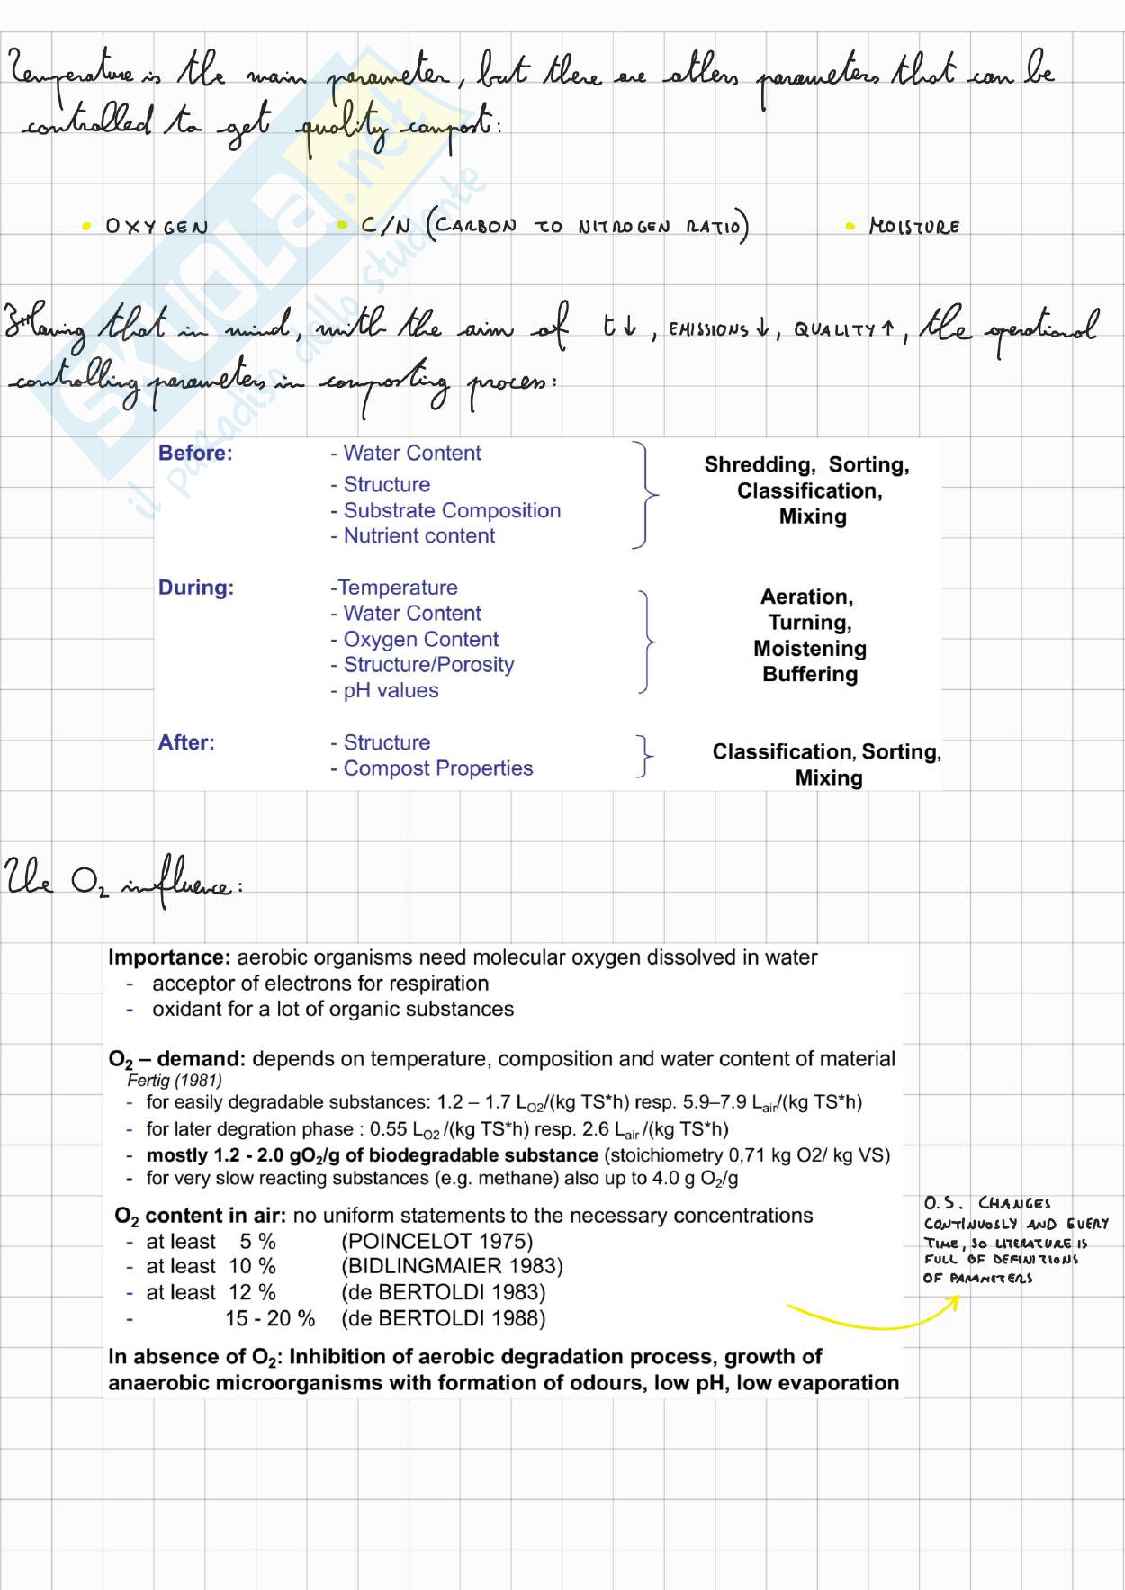 Temperature is the main parameter, but there are others parameters that can be
controlled to get quality compost:
• OXYGEN • C/N (CARBON TO NITROGEN RATIO) • MOISTURE
Having that in mind, with the aim of t↓, EMISSIONS↓, QUALITY↑, the operational
controlling parameters in composting process:
Before: - Water Content
- Structure
- Substrate Composition
- Nutrient content
Shredding, Sorting,
Classification,
Mixing
During: -Temperature
- Water Content
- Oxygen Content
- Structure/Porosity
- pH values
Aeration,
Turning,
Moistening
Buffering
After: - Structure
- Compost Properties
Classification, Sorting,
Mixing
The O₂ influence:
Importance: aerobic organisms need molecular oxygen dissolved in water
- acceptor of electrons for respiration
- oxidant for a lot of organic substances
O₂ – demand: depends on temperature, composition and water content of material
Fertig (1981)
- for easily degradable substances: 1.2 – 1.7 L_O2/(kg TS*h) resp. 5.9–7.9 L_air/(kg TS*h)
- for later degration phase : 0.55 L_O2 /(kg TS*h) resp. 2.6 L_air /(kg TS*h)
- mostly 1.2 - 2.0 gO₂/g of biodegradable substance (stoichiometry 0,71 kg O2/ kg VS)
- for very slow reacting substances (e.g. methane) also up to 4.0 g O₂/g
O₂ content in air: no uniform statements to the necessary concentrations
- at least 5 % (POINCELOT 1975)
- at least 10 % (BIDLINGMAIER 1983)
- at least 12 % (de BERTOLDI 1983)
- 15 - 20 % (de BERTOLDI 1988)
O.S. CHANGES
CONTINUOSLY AND EVERY
TIME, SO LITERATURE IS
FULL OF DEFINITIONS
OF PARAMETERS
In absence of O₂: Inhibition of aerobic degradation process, growth of
anaerobic microorganisms with formation of odours, low pH, low evaporation
SKUOLA.net
il paradiso dello studente